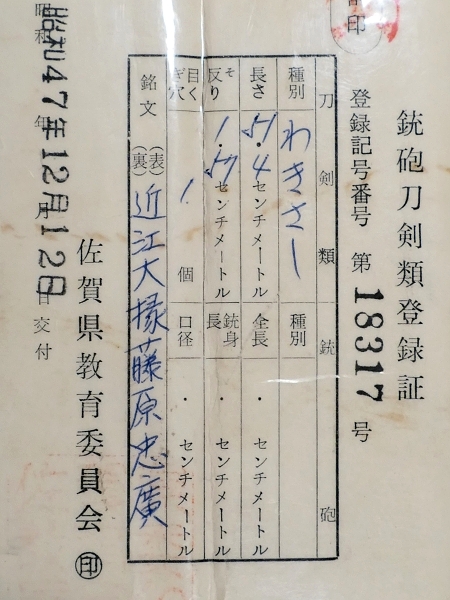 銃砲刀剣類登録証
登録記号番号 第 18317 号
刀剣類 銃砲
種別 わきさし 種別
長さ ・4 センチメートル 全長 ・ センチメートル
反り 1・ センチメートル 銃身長 ・ センチメートル
目くぎ穴 1 個 口径 ・ センチメートル
銘文 (表) (裏) 近江大掾藤原忠廣
佐賀県教育委員会 印
昭和47年12月12日交付
印